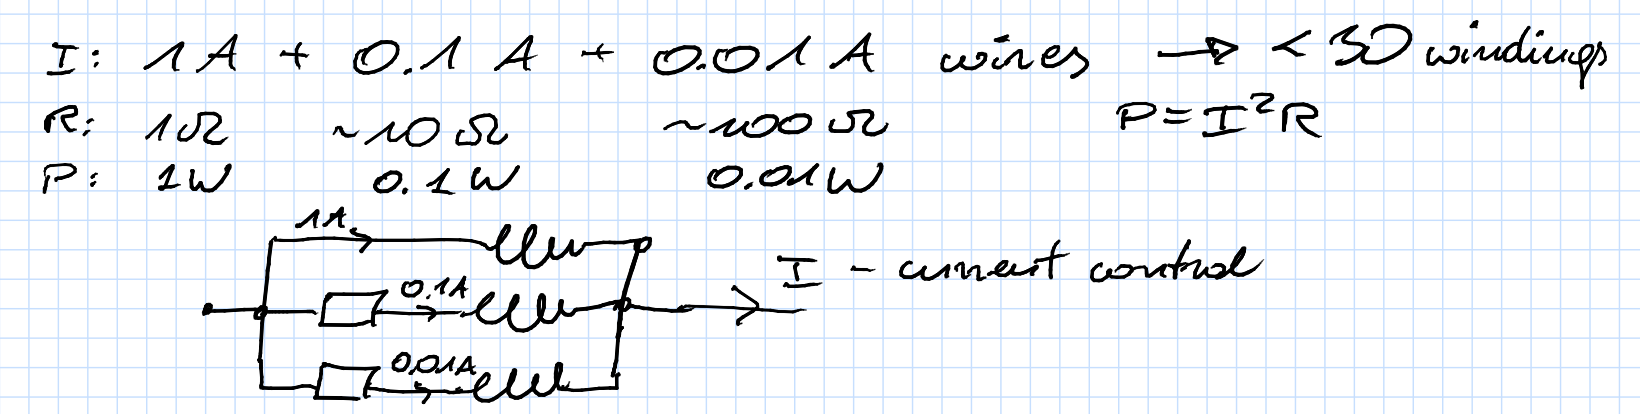 I: 1A + 0.1A + 0.01A wires → < 30 windings
R: 1Ω ~10Ω ~100Ω P=I²R
P: 1W 0.1W 0.01W
1A
0.1A
I - current control
0.01A